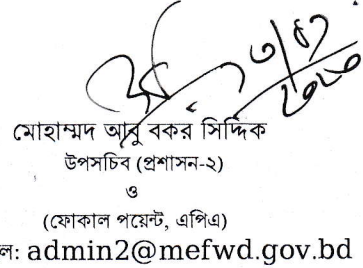 মোহাম্মদ আবু বকর সিদ্দিক
উপসচিব (প্রশাসন-২)
ও
(ফোকাল পয়েন্ট, এপিএ)
ল: admin2@mefwd.gov.bd